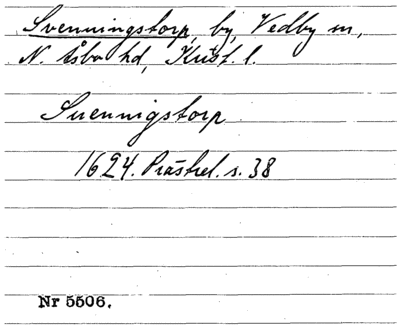 Svenningstorp, by, Vedby sn,
N. Åsbo hd, Krist. l.
Suennigstorp
1624. Prästrel. s. 38
Nr 5506.